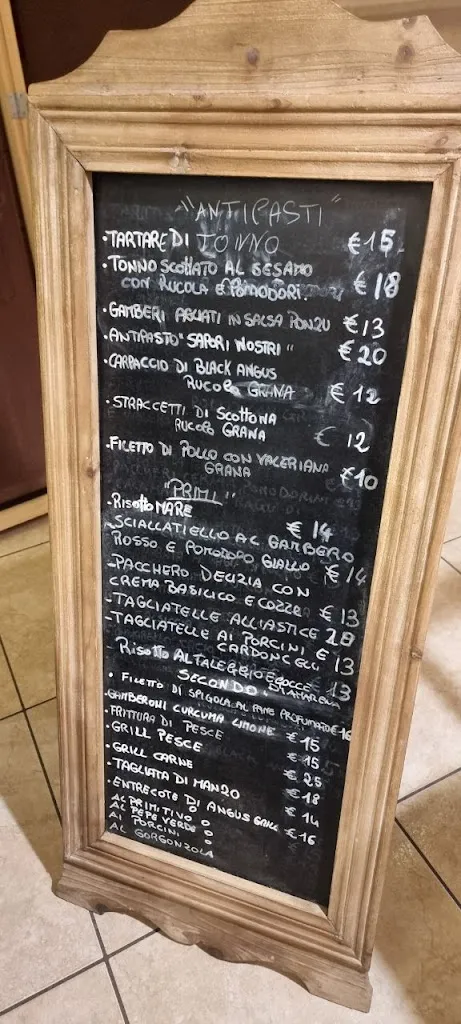 "ANTIPASTI"
• TARTARE DI TONNO €15
• TONNO SCOTTATO AL SESAMO
CON RUCOLA E POMODORI. €18
• GAMBERI AGLIATI IN SALSA PONZU €13
• ANTIPASTO "SAPORI NOSTRI" €20
• CARPACCIO DI BLACK ANGUS
RUCOLA GRANA €12
• STRACCETTI DI SCOTTONA
RUCOLA GRANA €12
• FILETTO DI POLLO CON VALERIANA
GRANA €10
"PRIMI"
- RISOTTO MARE €14
- SCIALLATIELLO AL GAMBERO
ROSSO E POMODORO GIALLO €14
- PACCHERO DELIZIA CON
CREMA BASILICO E COZZE €13
- TAGLIATELLE ALL'ASTICE 20
- TAGLIATELLE AI PORCINI E
CARDONCELLI €13
- RISOTTO AL TALEGGIO E GOCCE
DI AMARENA 13
SECONDO
• FILETTO DI SPIGOLA AL PANE PROFUMATO €16
• GAMBERONI CURCUMA LIMONE €15
• FRITTURA DI PESCE €15
• GRILL PESCE €25
• GRILL CARNE €18
• TAGLIATA DI MANZO €14
• ENTRECOTE DI ANGUS GRILL €16
AL PRIMITIVO O
AL PEPE VERDE O
AI PORCINI O
AL GORGONZOLA